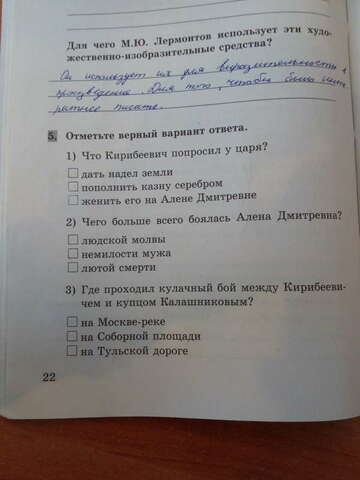 Для чего М.Ю. Лермонтов использует эти худо-
жественно-изобразительные средства?
Он использует их для выразительности в
произведение. Для того, чтобы было инте
ратнее писате.
5. Отметьте верный вариант ответа.
1) Что Кирибеевич попросил у царя?
дать надел земли
пополнить казну серебром
женить его на Алене Дмитревне
2) Чего больше всего боялась Алена Дмитревна?
людской молвы
немилости мужа
лютой смерти
3) Где проходил кулачный бой между Кирибееви-
чем и купцом Калашниковым?
на Москве-реке
на Соборной площади
на Тульской дороге
22